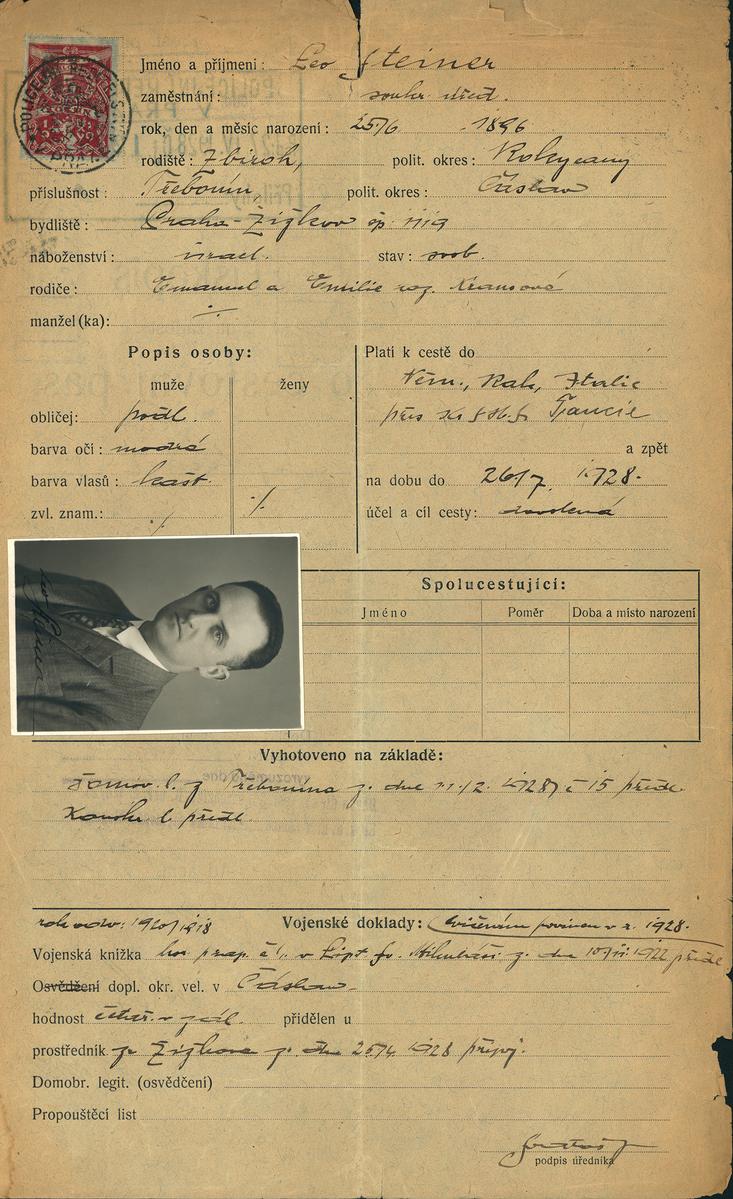 Jméno a příjmení: Leo Steiner
zaměstnání: soukr. úřed.
rok, den a měsíc narození: 25/6 1896
rodiště: Zbiroh, polit. okres: Rokycany
příslušnost: Třebonín, polit. okres: Čáslav
bydliště: Praha-Žižkov čp. 1119
náboženství: israel. stav: svob.
rodiče: Emanuel a Emilie roz. Krausová
manžel (ka): ./.
Popis osoby:
muže ženy
obličej: podl.
barva očí: modrá
barva vlasů: kašt.
zvl. znam.: ./. ./.
Platí k cestě do
Něm., Rak., Italie
přes Francie
a zpět
na dobu do 26/7 1928.
účel a cíl cesty: dovolená
Leo Steiner
Spolucestující:
Jméno Poměr Doba a místo narození
Vyhotoveno na základě:
Domov. l. z Třebonína z. dne 11/2. 1928 č 15 předl.
l. předl
rok odv: 1920/1918 Vojenské doklady: cvičením povinen v r. 1928.
Vojenská knížka hor. prap. č 1. v Lipt. sv. Mikuláši z. dne 1922 předl
Osvědčení dopl. okr. vel. v Čáslav
hodnost četař v zál. přidělen u
prostředník ze Žižkova z. dne 1928 připoj.
Domobr. legit. (osvědčení)
Propouštěcí list
podpis úředníka